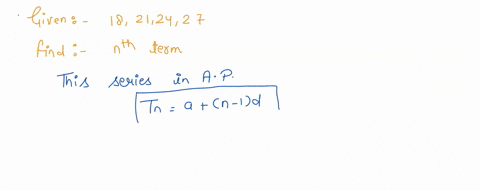 Given:- 18, 21, 24, 27
find:- nth term
This series in A.P.
Tn = a + (n-1)d